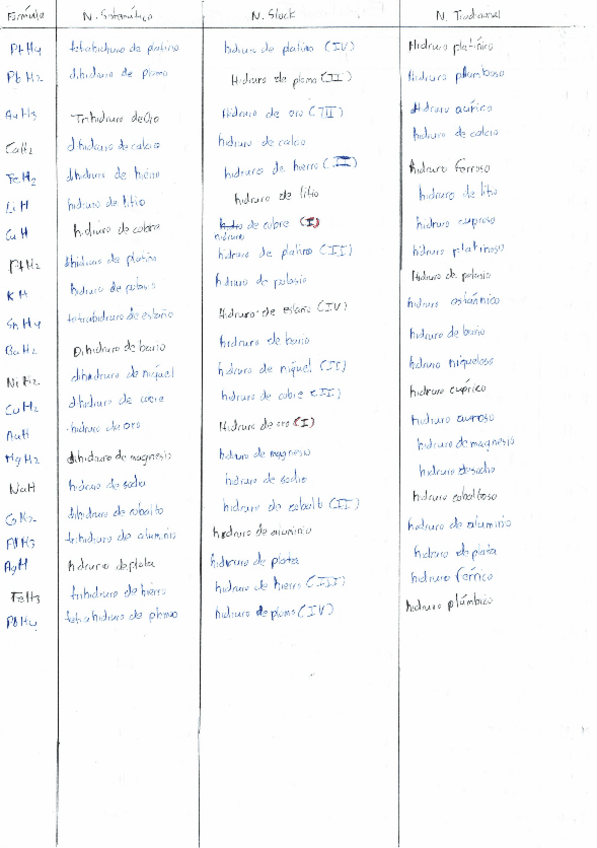 Fórmula N. Sistemático N. Stock N. Tradicional
PtH4 tetrahidruro de platino hidruro de platino (IV) Hidruro platínico
PbH2 dihidruro de plomo Hidruro de plomo (II) Hidruro plumboso
AuH3 Trihidruro de Oro Hidruro de oro (III) Hidruro aúrico
CaH2 dihidruro de calcio hidruro de calcio hidruro de calcio
FeH2 dihidruro de hierro hidruro de hierro (II) hidruro ferroso
LiH hidruro de litio hidruro de litio hidruro de litio
CuH hidruro de cobre hidruro de cobre (I) hidruro cuproso
PtH2 dihidruro de platino hidruro de platino (II) hidruro platinoso
KH hidruro de potasio hidruro de potasio Hidruro de potasio
SnH4 tetrahidruro de estaño Hidruro de estaño (IV) hidruro estánnico
BaH2 Dihidruro de bario hidruro de bario hidruro de bario
NiH2 dihidruro de níquel hidruro de níquel (II) hidruro niqueloso
CuH2 dihidruro de cobre hidruro de cobre (II) hidruro cúprico
AuH hidruro de oro Hidruro de oro (I) hidruro auroso
MgH2 dihidruro de magnesio hidruro de magnesio hidruro de magnesio
NaH hidruro de sodio hidruro de sodio hidruro de sodio
CoH2 dihidruro de cobalto hidruro de cobalto (II) hidruro cobaltoso
AlH3 trihidruro de aluminio hidruro de aluminio hidruro de aluminio
AgH hidruro de plata hidruro de plata hidruro de plata
FeH3 trihidruro de hierro hidruro de hierro (III) hidruro férrico
PbH4 tetrahidruro de plomo hidruro de plomo (IV) hidruro plúmbico